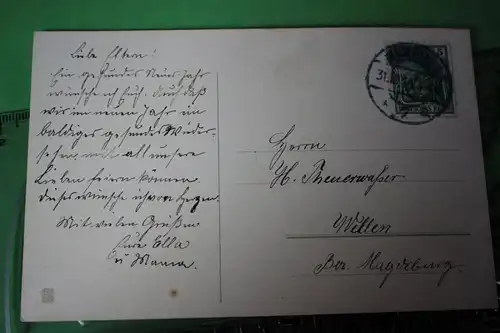 Liebe Eltern!
Ein gesundes Neues Jahr
wünsche ich Euch. Auf daß
wir im neuen Jahr ein
baldiges gesundes Wieder-
sehen mit all unsern
Lieben feiern können
dieses wünsche ich von Herzen.
Mit vielen Grüßen
Eure Ella
u Mama.
Herrn
H. Theuerwasser
Wellen
Bez. Magdeburg.
31.
5